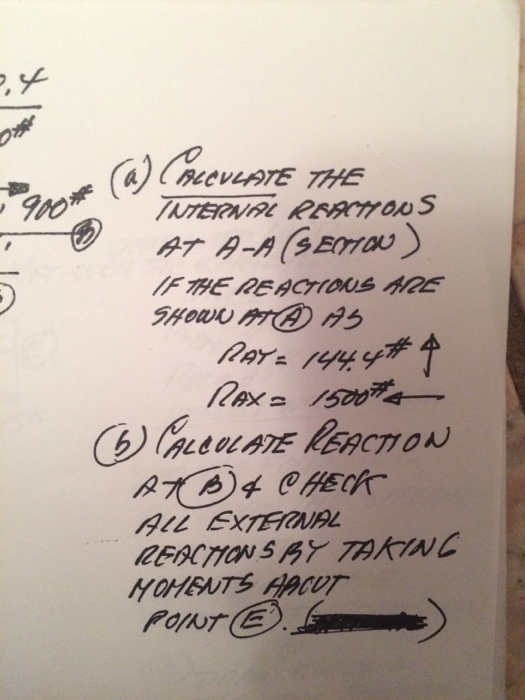 .4
0#
900#
B
(a) CALCULATE THE
INTERNAL REACTIONS
AT A-A (SECTION)
IF THE REACTIONS ARE
SHOWN AT (A) AS
RAY = 144.4# ↑
RAX = 1500# ←
(b) CALCULATE REACTION
AT (B) & CHECK
ALL EXTERNAL
REACTIONS BY TAKING
MOMENTS ABOUT
POINT (E). ( )